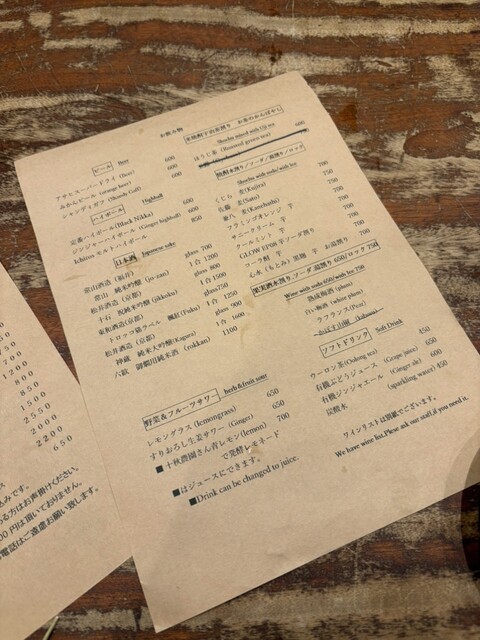 お飲み物
ビール Beer
アサヒスーパードライ (Beer) 600
みかんビール (orange beer) 600
シャンディガフ (Shandy Gaff) 600
ハイボール Highball
定番ハイボール(Black Nikka) 600
ジンジャーハイボール (Ginger highball) 600
Ichiros モルトハイボール 850
日本酒 Japanese sake
常山酒造(福井) glass 700
常山 純米吟醸 (jo-zan) 1合 1200
松井酒造(京都) glass 800
純米吟醸(jikkoku) 1合 1500
東和酒造(京都) glass750
トロッコ猫ラベル (Fuku) 1合 1250
松井酒造(京都) glass 900
神蔵 純米大吟醸(Kagura) 1合 1600
六紋 御猟用純米酒 (rokkan) 1100
野菜&フルーツサワー herb&fruit sour
レモングラス (lemongrass) 650
すりおろし生姜サワー (Ginger) 650
■十秋農園さん青レモン(lemon) 700
で発酵レモネード
■はジュースにできます。
■Drink can be changed to juice.
米焼酎宇治茶割り お茶のかんばやし
Shochu mixed with Uji tea
ほうじ茶 (Roasted green tea) 600
焼酎水割り/ソーダ/湯割り/ロック
Shochu with soda/with ice
くじら 麦(Kujira) 700
佐藤 麦(Satu) 750
兼八 麦(Kanehachi) 750
フラミンゴオレンジ 芋 700
サニークリーム 芋 700
クールミント 芋 700
GLOW EP08 芋ソーダ割り
コーラ鶴 芋
心水(もとみ)黒麹 芋 お湯割り 700
果実酒水割り ソーダ 湯割り 650/ロック 750
Wine with soda 650/with Ice 750
熟成梅酒 (plum)
白い梅酒 (white plum)
ラフランス(Pear)
ソフトドリンク Soft Drink
ウーロン茶(Oolong tea) 450
有機ぶどうジュース (Grape juice) 650
有機ジンジャエール (Ginger ale) 600
炭酸水 (sparkling water) 450
ワインリストは別紙でございます。
We have wine list,Please ask our staff,if you need it.
1200
850
1500
2550
2000
2200
650
る方はお声掛けください。
00円は頂いておりません。
電話はご遠慮お願い致します。